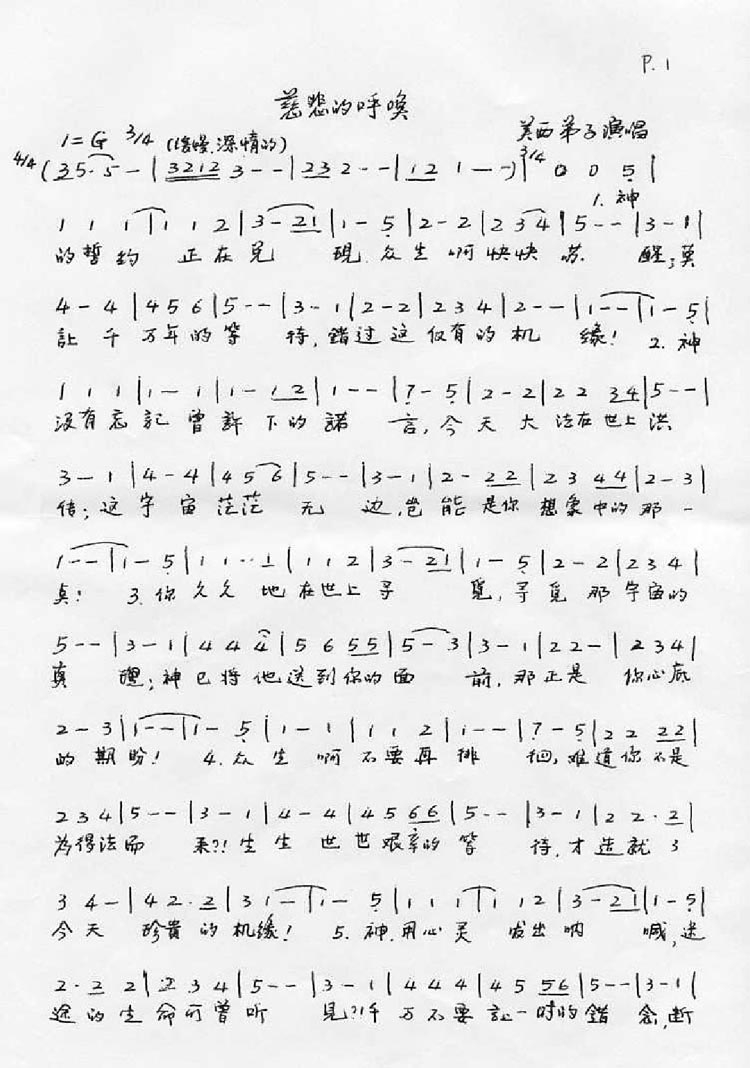 P.1
慈悲的呼唤
1=G 3/4 (缓慢.深情的) 美西弟子演唱
4/4 (35·5-|3212 3--|232 2--|12 1--)|3/4 0 0 5|
1.神
1 1 1|1 1 2|3-21|1-5|2-2|2 3 4|5--|3-1|
的誓约 正在兑 现.众生啊快快苏 醒;莫
4-4|4 5 6|5--|3-1|2-2|2 3 4|2--|1--|1-5|
让千万年的等 待,错过这仅有的机 缘! 2.神
1 1 1|1-1|1-12|1--|7-5|2-2|2 2 34|5--|
没有忘记曾许下的诺 言,今天大法在世上洪
3-1|4-4|4 5 6|5--|3-1|2-22|2 3 44|2-3|
传;这宇宙茫茫 无 边,岂能是你想象中的那一
1--|1-5|1 1··1|1 1 2|3-21|1-5|2-2|2 3 4|
3.你久久地在世上寻 觅,寻觅那宇宙的
5--|3-1|4 4 4|5 6 55|5-3|3-1|2 2-|2 3 4|
真 理;神已将他送到你的面 前,那正是 你心底
2-3|1--|1-5|1-1|1 1 2|1--|7-5|2 2 22|
的期盼! 4.众生啊不要再徘 徊,难道你不是
2 3 4|5--|3-1|4-4|4 5 66|5--|3-1|2 2·2|
为得法而 来?!生生世世艰辛的等 待,才造就了
3 4-|4 2·2|3 1-|1-5|1 1 1|1 1 2|3-21|1-5|
今天 珍贵的机缘! 5.神.用心灵 发出呐 喊,迷
2·2 2|2 3 4|5--|3-1|4 4 4|4 5 56|5--|3-1|
途的生命可曾听 见?!千万不要让一时的错 念,断